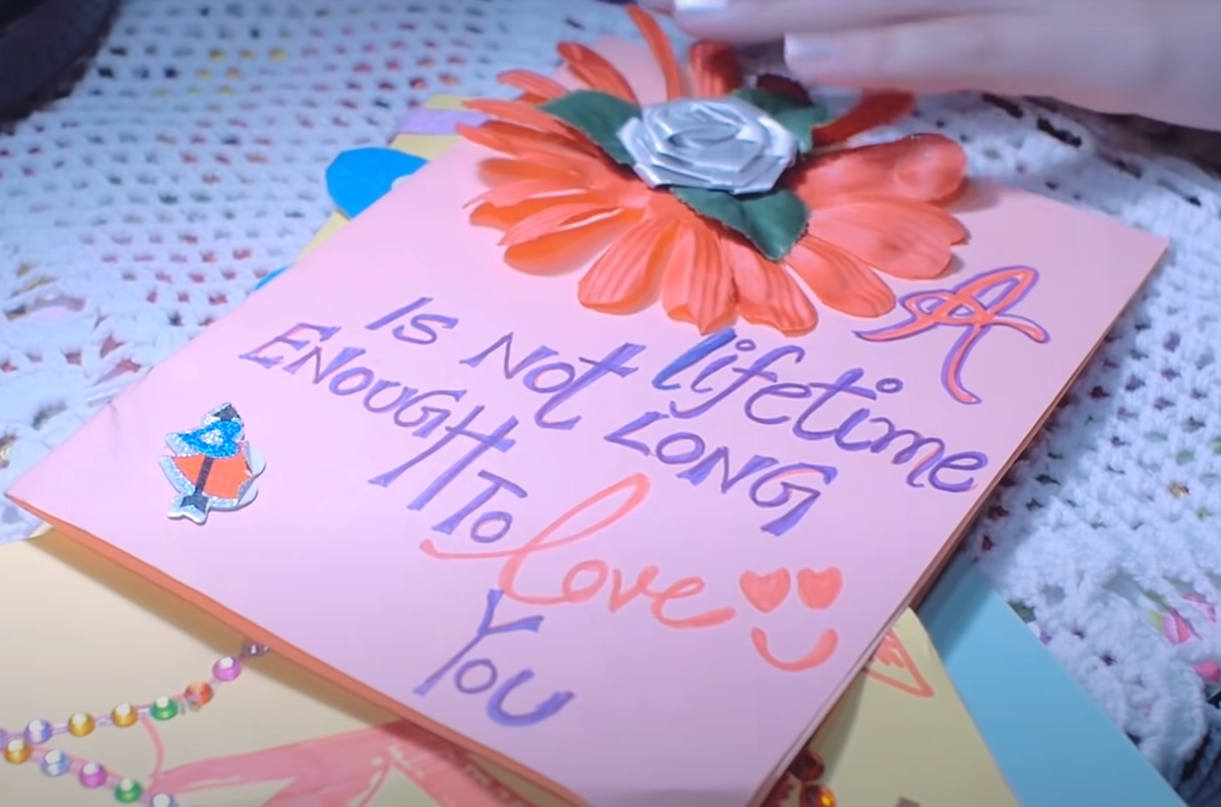 A
lifetime
Is Not LONG
ENOUGH To
love
You